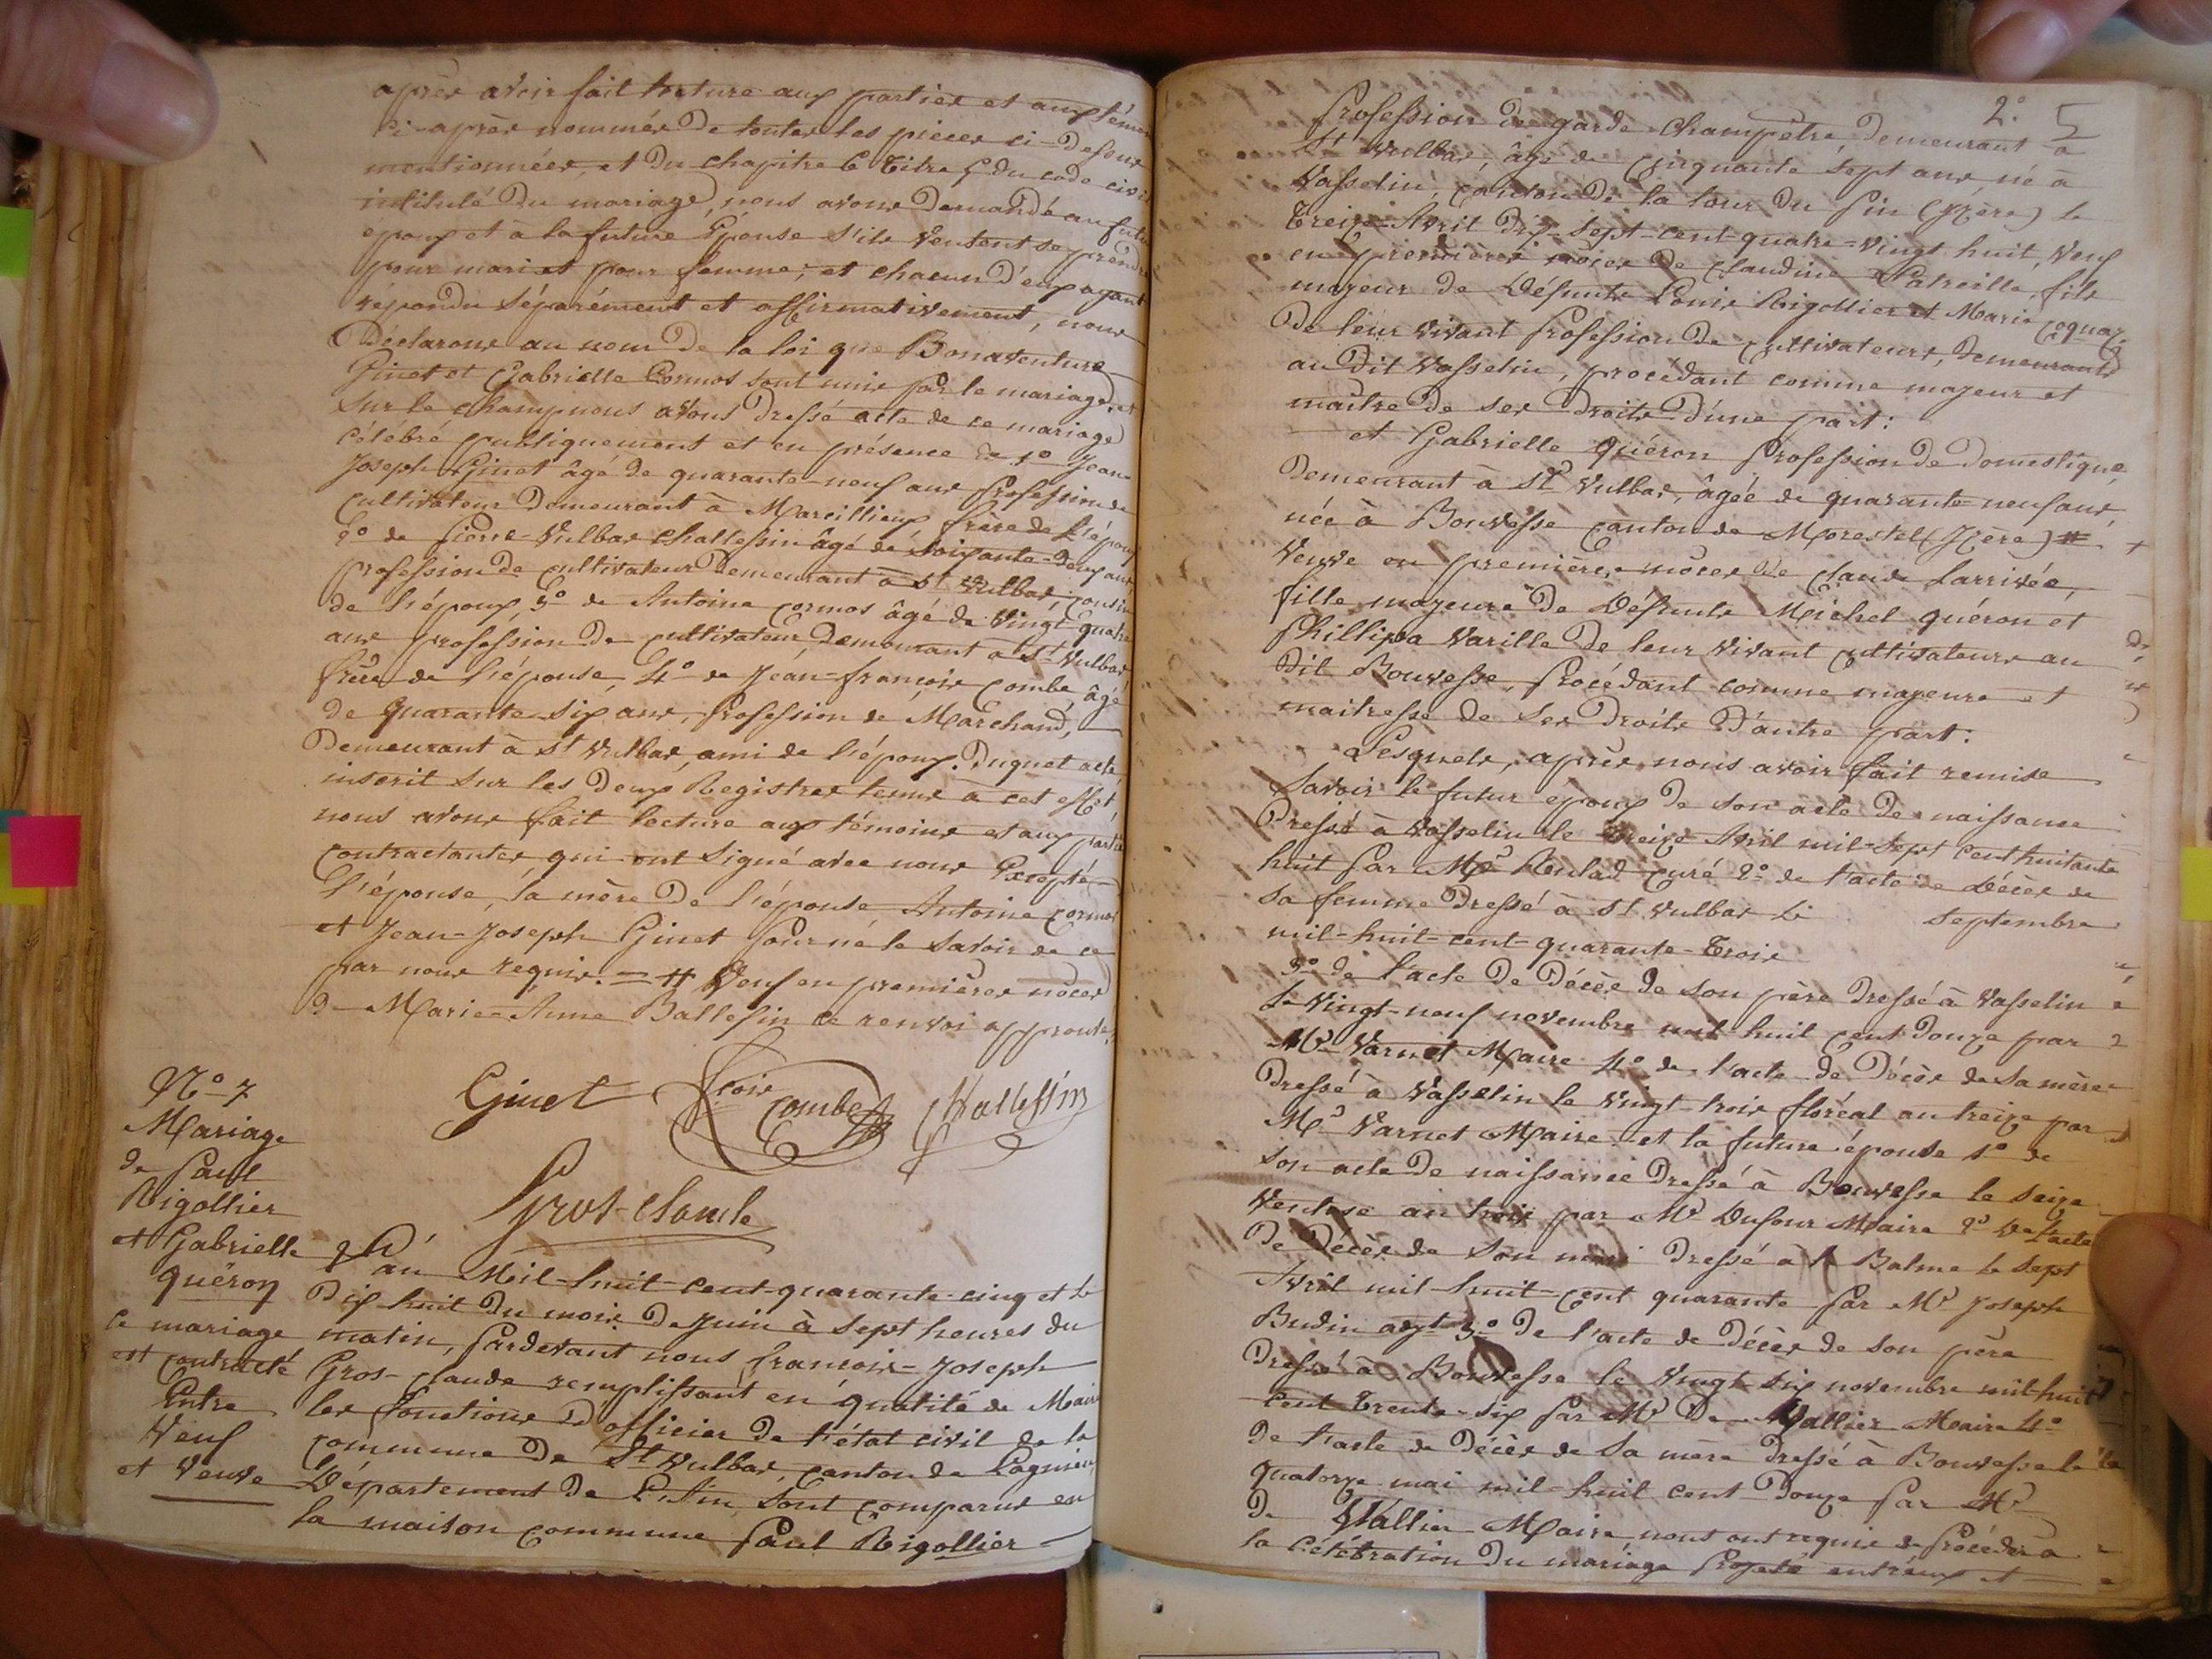 après avoir fait lecture aux parties et aux témoins
ci-après nommés De toutes les pièces ci-Dessus
mentionnées, et Du chapitre 6 Titre 5 Du code civil
intitulé Du mariage, nous avons Demandé au futur
epoux et à la future Epouse s'ils veulent se prendre
pour mari et pour femme; et chacun D'eux ayant
répondu séparément et affirmativement, nous
Déclarons au nom De la loi que Bonaventure
Ginet et Gabrielle Cormos sont unis par le mariage, et
sur le champ nous avons Dressé acte de ce mariage
célébré publiquement et en présence de 1° Jean-
Joseph Ginet âgé de quarante-neuf ans profession de
cultivateur Demeurant à Marcillieux frère de l'époux
2° de pierre-Vulbas Challessin âgé de soixante-Deux ans
profession de cultivateur Demeurant à St Vulbas, cousin
de l'époux, 3° de Antoine Cormos âgé de Vingt quatre
ans profession De cultivateur, demeurant à St Vulbas
frère de l'épouse, 4° de Jean-françois Combe, âgé
de quarante-six ans, profession de Marchand,
Demeurant à St Vulbas, ami de l'époux. Duquel acte,
inscrit sur les Deux Registres tenus à cet effet,
nous avons fait lecture aux témoins et aux parties
contractantes qui ont signé avec nous Excepté
l'épouse, la mère De l'épouse, Antoine Cormos
et Jean-Joseph Ginet pour ne le savoir de ce
par nous requis. = # Veuf en premières noces
De Marie-Anne Ballesin ce renvoi approuvé.
Ginet fcois Combe Challessin
Gros-Claude
N° 7
Mariage
de Paul
Rigollier
et Gabrielle
quéron
le mariage
est contracté
Entre
Veuf
et Veuve
L'an Mil-huit-cent-quarante-cinq et le
Dix huit Du mois De Juin à sept heures du
matin, pardevant nous francois-Joseph
Gros-claude remplissant en qualité de Maire
les fonctions D'officier De l'état civil de la
commune De St Vulbas, canton de Lagnieu,
Département De L'Ain, sont comparus en
la maison commune Paul Rigollier
2° 5
Profession De garde champêtre, Demeurant à
St Vulbas, âgé de cinquante sept ans, né à
Vasselin, canton De la tour Du pin (Isère) le
Treize-Avril Dix-sept-cent-quatre-vingt huit, Veuf
en premières noces De Claudine Patreille, fils
majeur de Défunts Louis Rigollier et Marie Coquaz
De leur vivant profession De cultivateurs, Demeurants
au Dit Vasselin, procédant comme majeur et
maître De ses Droits D'une part:
et Gabrielle quéron profession De Domestique,
Demeurant à St Vulbas, âgée de quarante-neuf ans,
née à Bouvesse canton de Morestel (Isère) #
Veuve en premières noces De Claude Larrivée,
fille majeure De Défunts Michel quéron et
Phillippa Varille De leur vivant cultivateurs au
Dit Bouvesse, procédant comme majeure et
maitresse de ses Droits D'autre part:
Lesquels, après nous avoir fait remise
savoir le futur epoux De son acte De naissance
Dressé à Vasselin le Treize Avril mil-sept cent huitante
huit par Mr curé 2° de l'acte de Décès de
sa femme Dressé à St Vulbas le septembre
mil-huit-cent-quarante-Trois
3° de l'acte De Décès De son père Dressé à Vasselin
le Vingt-neuf novembre mil-huit cent Douze par
Mr Varnet Maire 4° de l'acte De Décès De sa mère
Dressé à Vasselin le Vingt-trois floréal an treize par
Mr Varnet Maire. et la future épouse 1° de
son acte De naissance Dressé à Bouvesse le seize
Ventose an trois par Mr Dufour Maire 2° De l'acte
De Décès de son mari Dressé à la Balme le sept
Avril mil-huit-cent quarante par Mr Joseph
Budin adjt 3° De l'acte de Décès De son père
Dressé à Bouvesse le Vingt six novembre mil-huit
cent Trente-six par Mr De Vallier Maire 4°
De l'acte de Décès de sa mère Dressé à Bouvesse le
quatorze mai mil-huit cent-Douze par Mr
De Vallier Maire nous ont requis de procéder à
la célébration Du mariage projeté entr'eux et